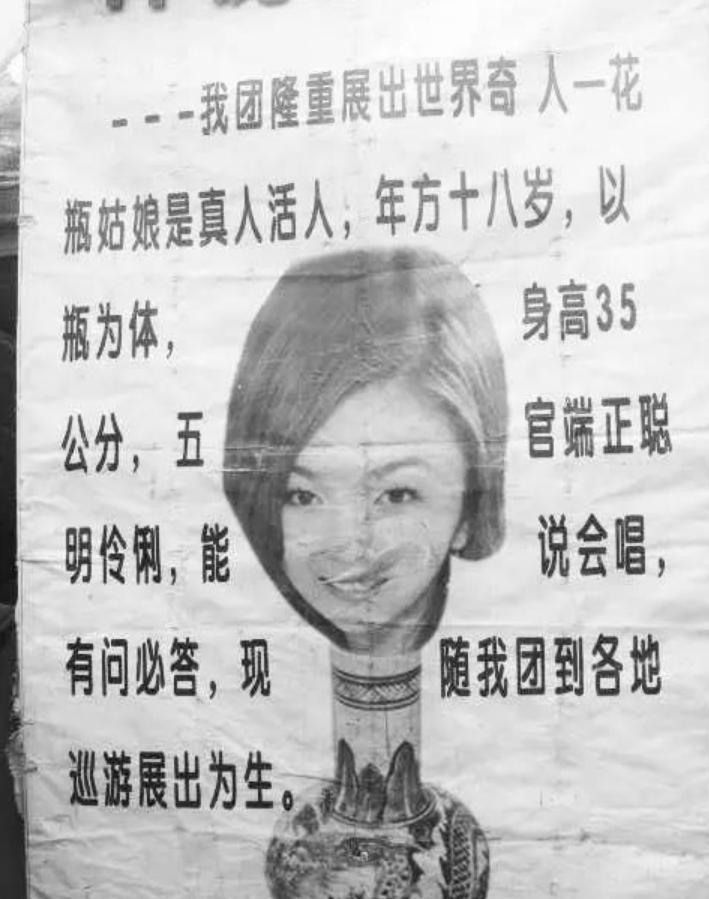 ---我团隆重展出世界奇 人一花
瓶姑娘是真人活人，年方十八岁，以
瓶为体， 身高35
公分，五 官端正聪
明伶俐，能 说会唱，
有问必答，现 随我团到各地
巡游展出为生。